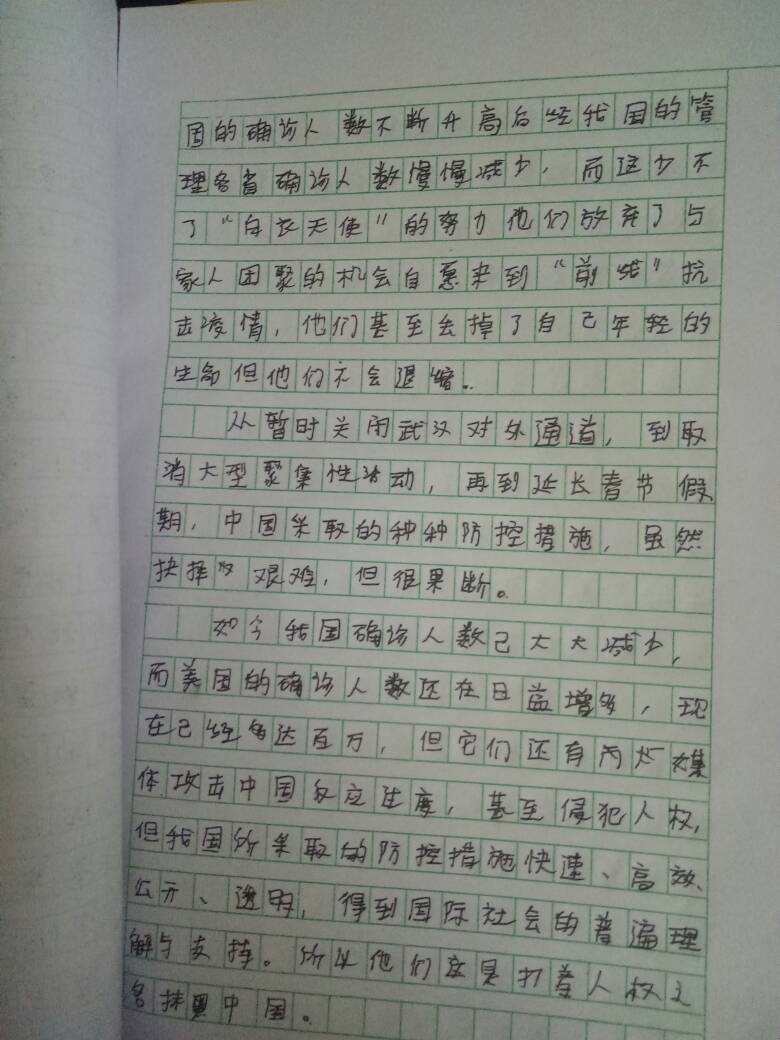 国的确诊人数不断升高后经我国的管
理各省确诊人数慢慢减少，而这少不
了“白衣天使”的努力他们放弃了与
家人团聚的机会自愿来到“前线”抗
击疫情，他们甚至去掉了自己年轻的
生命但他们不会退缩。
从暂时关闭武汉对外通道，到取
消大型聚集性活动，再到延长春节假
期，中国采取的种种防控措施，虽然
抉择艰难，但很果断。
如今我国确诊人数已大大减少，
而美国的确诊人数还在日益增多，现
在已经多达百万，但它们还有两媒
体攻击中国反应速度，甚至侵犯人权，
但我国所采取的防控措施快速、高效、
公开、透明，得到国际社会的普遍理
解与支持。所以他们这是打着人权之
名抹黑中国。